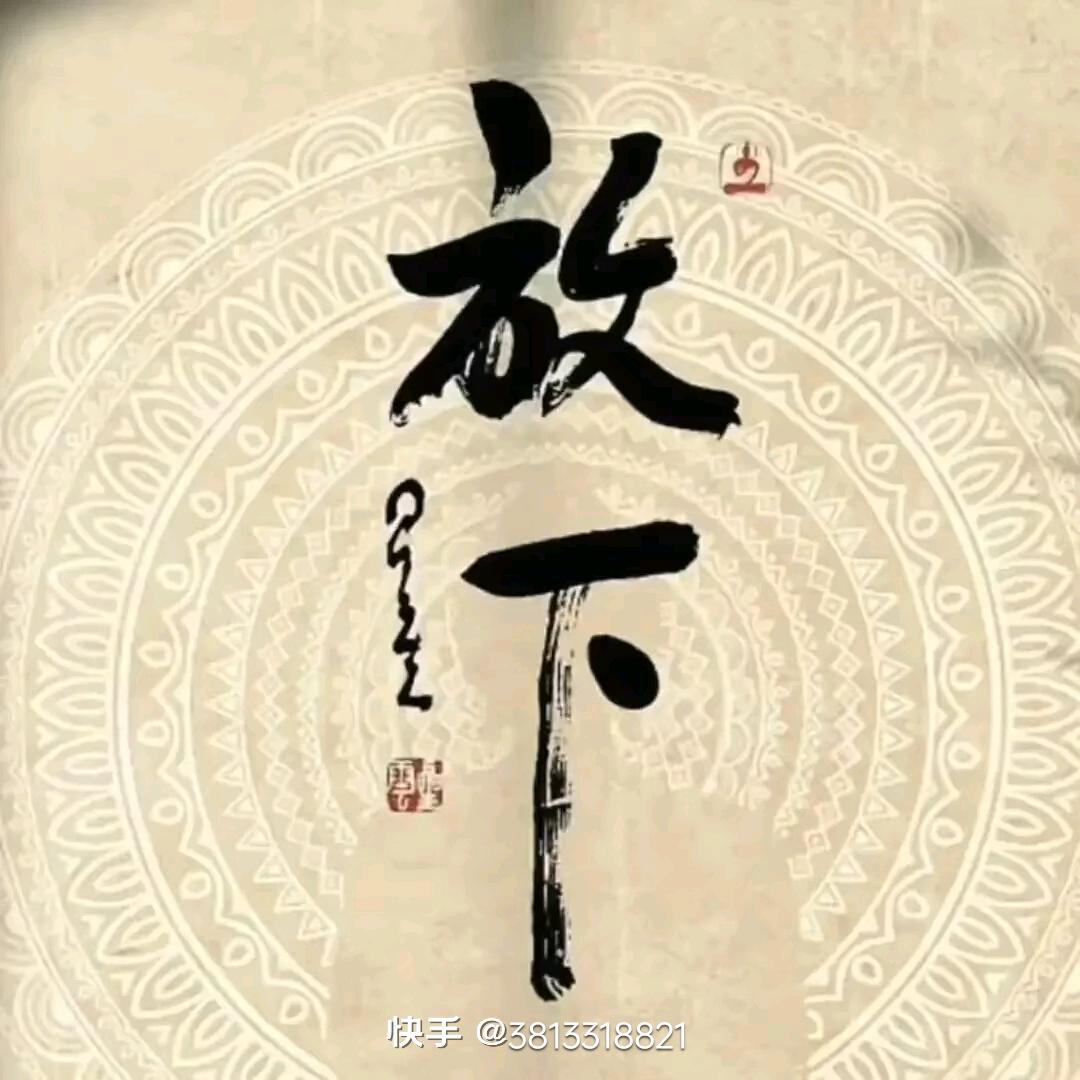 放
下
星雲
快手 @3813318821